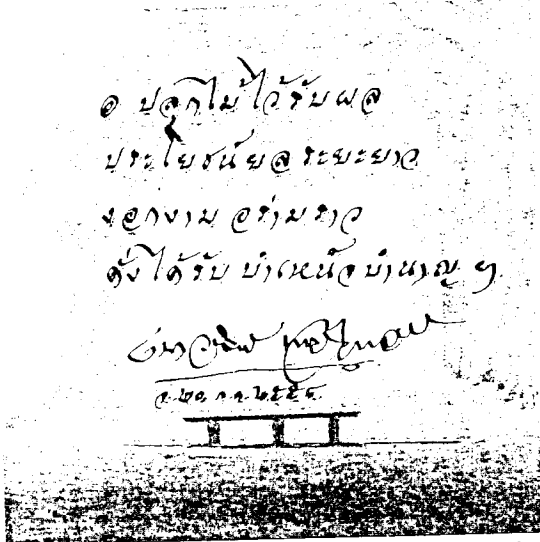 ๏ ปลูกไม้ไว้รับผล
ประโยชน์ยล ระยะยาว
งอกงาม อร่ามราว
ดั่งได้รับ บำเหน็จบำนาญ ฯ